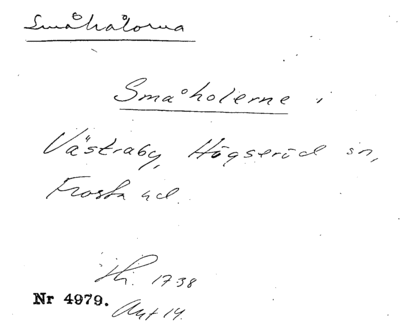 Småhålorna
Småholerne i
Västraby, Högseröd sn,
Frosta hd.
1738
Nr 4979.
Akt 14.